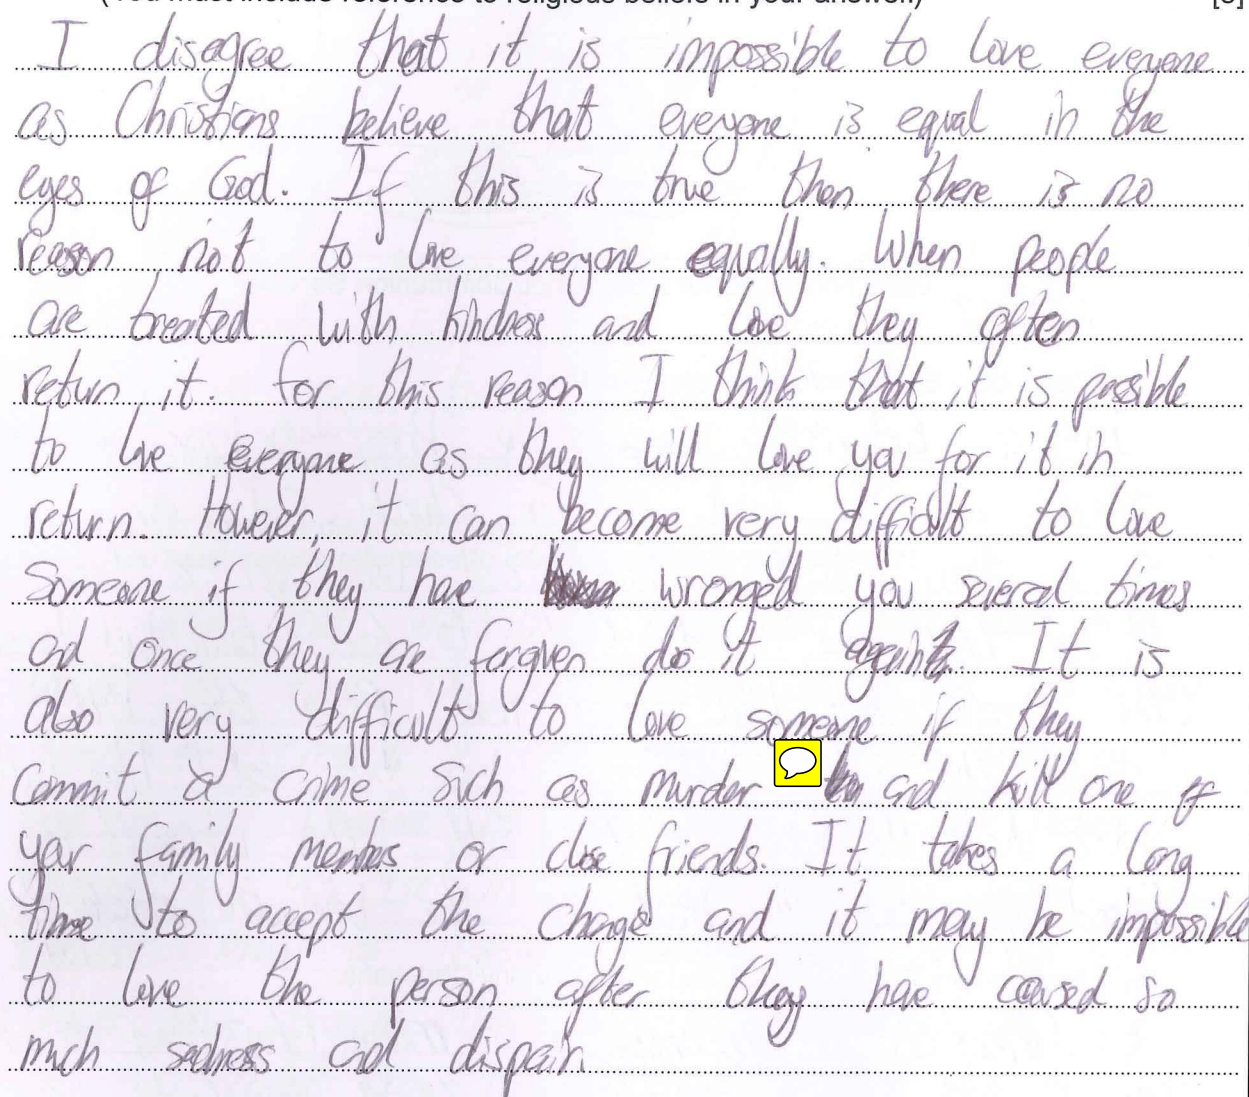 (You must include reference to religious beliefs in your answer.)
I disagree that it is impossible to love everyone
as Christians believe that everyone is equal in the
eyes of God. If this is true then there is no
reason not to love everyone equally. When people
are treated with kindness and love they often
return it. for this reason I think that it is possible
to love everyone as they will love you for it in
return. However, it can become very difficult to love
someone if they have wronged you several times
and once they are forgiven do it again. It is
also very difficult to love someone if they
commit a crime such as murder and kill one of
your family members or close friends. It takes a long
time to accept the change and it may be impossible
to love the person after they have caused so
much sadness and dispair.